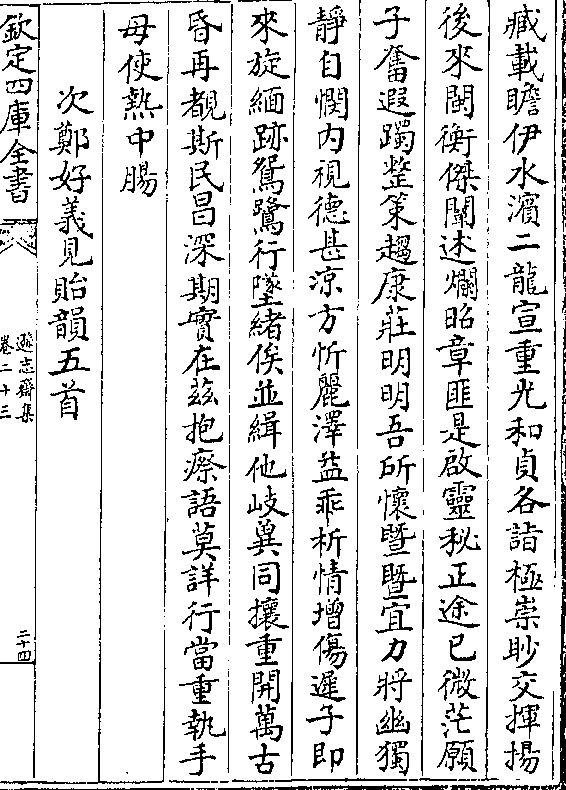 臧載瞻伊水濱二龍宣重光和貞各詣極崇眇交揮揚
後來閩衡傑闡述爛昭章匪是啟靈秘正途已微茫願
子奮遐躅整策趨康莊明明吾所懷曁曁宜力將幽獨
靜自憫内視德甚涼方忻麗澤益乖析情增傷遲子即
來旋緬跡鴛鷺行墜緒俟並緝他岐兾同攘重開萬古
昏再覩斯民昌深期實在兹抱瘵語莫詳行當重執手
毋使熱中腸
次鄭好義見貽韻五首
欽定四庫全書
遜志齋集
卷二十三
二十四